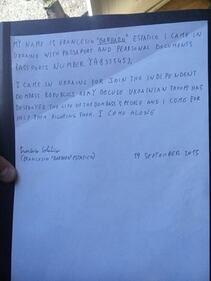 MY NAME IS FRANCESCO "BARBARU" ESTATICO I CAME IN
UKRAINE WITH PASSPORT AND PERSONAL DOCUMENTS
(PASSPORTS NUMBER
I CAME IN UKRAINE FOR JOIN THE INDEPENDENT
DOMBASS REPUBLICS ARMY BECUSE UKRAINIAN TROOPS HAS
DESTROYED THE LIFE OF THE DOMBASS'S PEOPLE AND I COME FOR
HELP THEM FIGHTING THEM. I COME ALONE
(FRANCESCO ESTATICO) 19 SEPTEMBER 2015